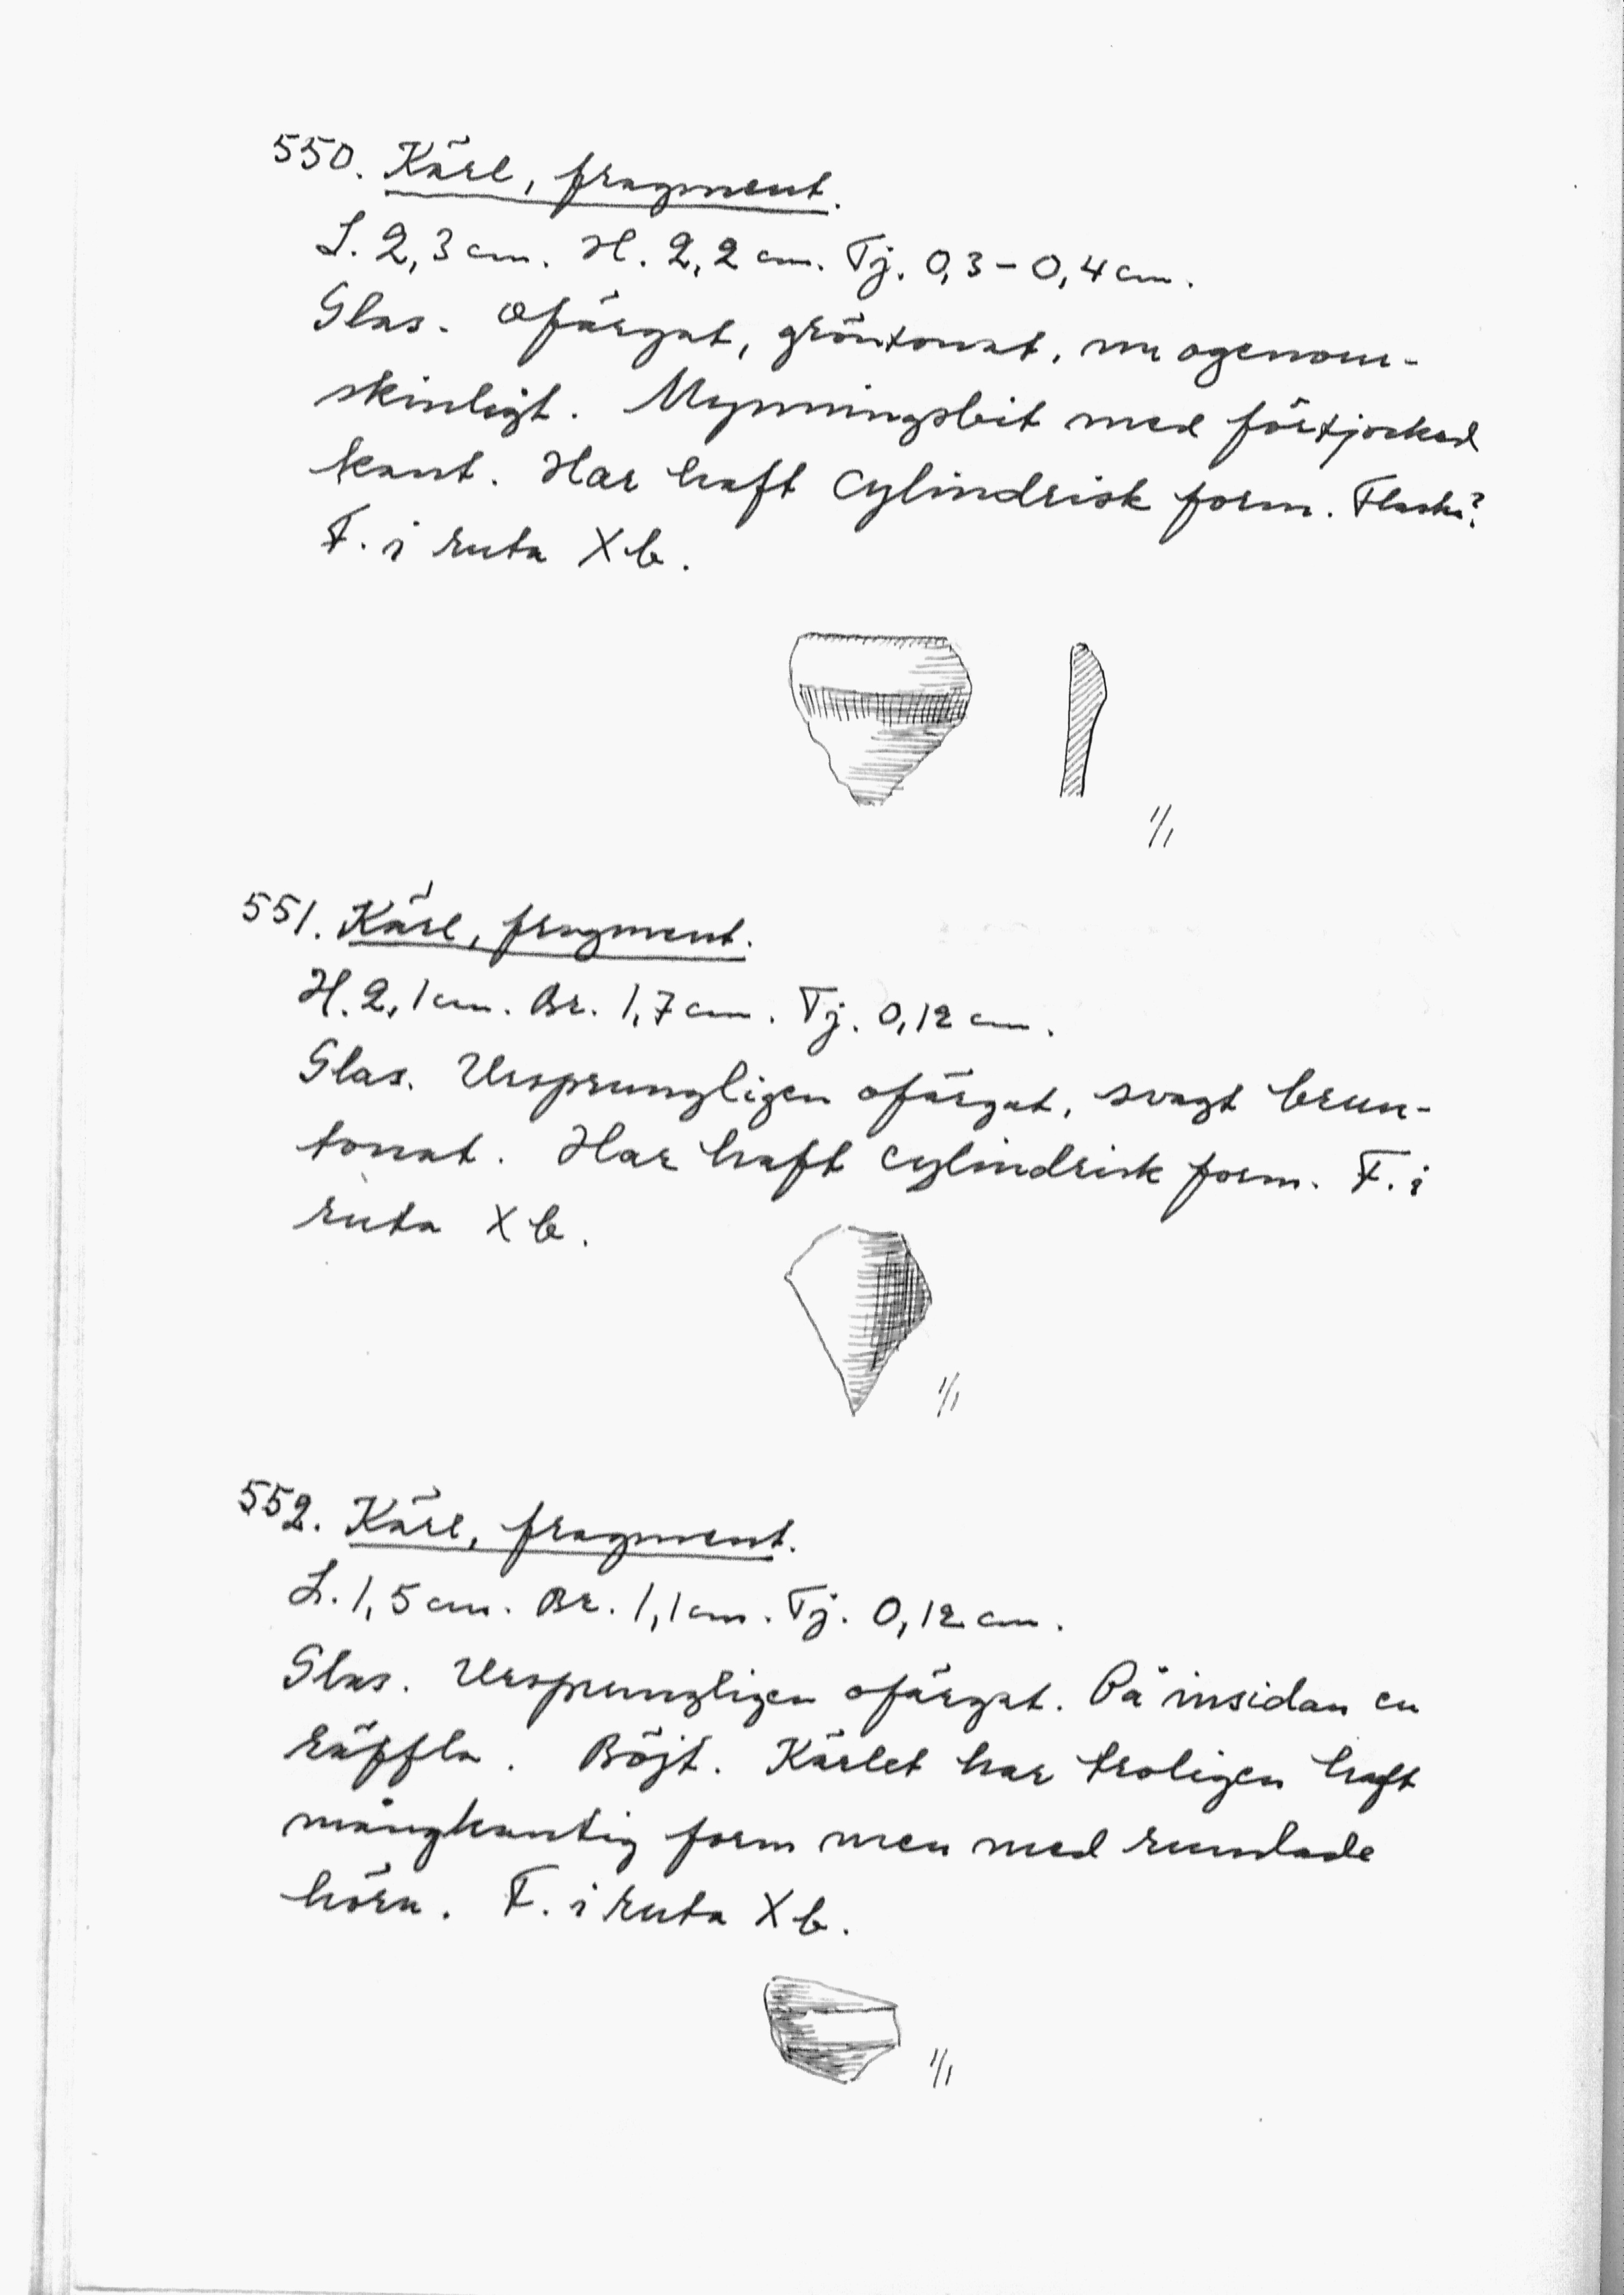 550. Kärl, fragment.
L. 2,3 cm. H. 2,2 cm. Tj. 0,3-0,4 cm.
Glas. Ofärgat, gröntonat, nu ogenom-
skinligt. Mynningsbit med förtjockad
kant. Har haft cylindrisk form. Flaska?
F. i ruta Xb.
1/1
551. Kärl, fragment.
H. 2,1 cm. Br. 1,7 cm. Tj. 0,12 cm.
Glas. Ursprungligen ofärgat, svagt brun-
tonat. Har haft cylindrisk form. F. i
ruta Xb.
1/1
552. Kärl, fragment.
L. 1,5 cm. Br. 1,1 cm. Tj. 0,12 cm.
Glas. Ursprungligen ofärgat. På insidan en
räffla. Böjt. Kärlet har troligen haft
mångkantig form men med rundade
hörn. F. i ruta Xb.
1/1